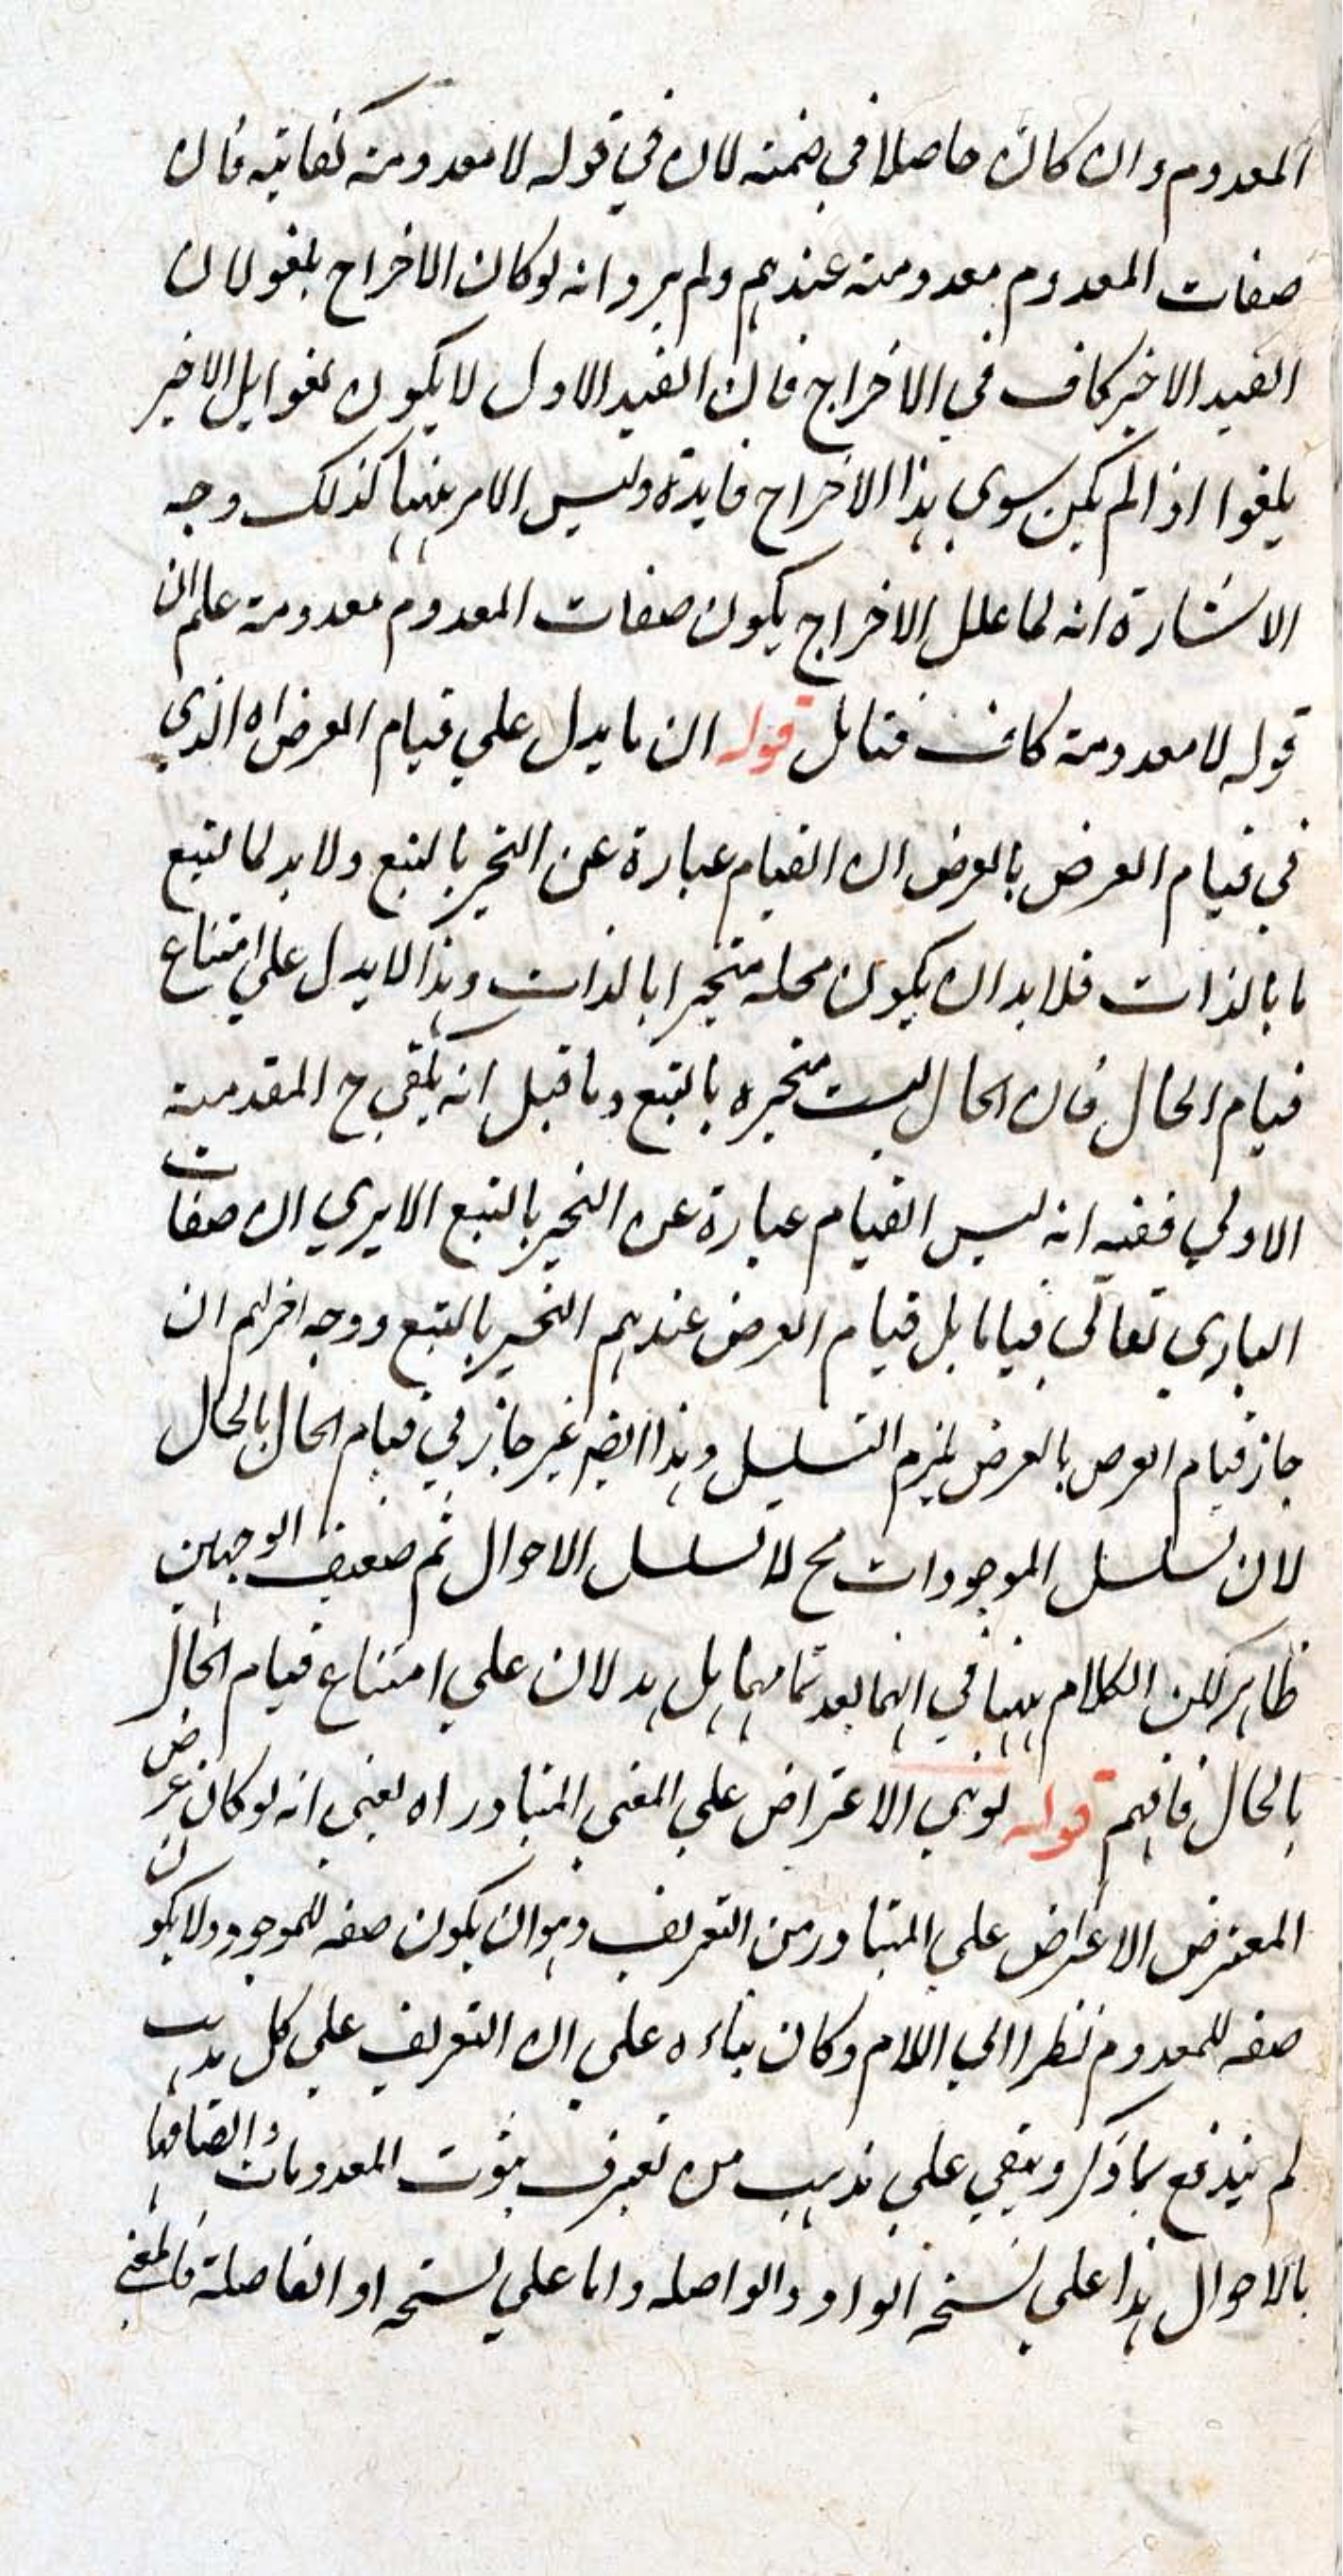 المعدوم وان كان حاصلا في ضمنه لان في قوله لا معدومة كفاية فان
صفات المعدوم معدومة عندهم ولم يرو انه لو كان الاخراج بلغو لان
القيد الاخير كاف في الاخراج فان القيد الاول لا يكون لغوا بل الاخير
يلغوا اذا لم يكن سوى هذا الاخراج فايدة وليس الامر ههنا كذلك وجه
الاشارة انه لما علل الاخراج بكون صفات المعدوم معدومة علم ان
قوله لا معدومة كاف فتامل قوله ان ما يدل علي قيام العرض اه الذي
في قيام العرض بالعرض ان القيام عبارة عن التحيز بالتبع ولا بد لما لتبع
ما بالذات فلا بد ان يكون محله متحيزا بالذات وهذا لا يدل علي امتناع
قيام الحال فان الحال ليست متحيزه بالتبع وما قيل انه يكفي ح المقدمة
الاولي ففيه انه ليس القيام عبارة عن التحيز بالتبع الا يري ان صفات
الباري تعالي قياما بل قيام العرض عندهم التحيز بالتبع ووجه اخر لهم ان
جاز قيام العرض بالعرض يلزم التسلسل وهذا ايضا غير جايز في قيام الحال بالحال
لان تسلسل الموجودات مح لا تسلسل الاحوال ثم ضعيف الوجهين
ظاهر لكن الكلام ههنا في انهما بعد تمامهما هل يدلان علي امتناع قيام الحال
بالحال فافهم قوله لو نهي الاعتراض علي المعني المتبادر اه يعني انه لو كان غرض
المعترض الاعتراض علي المتبادر من التعريف وهو ان يكون صفه للموجود ولا يكون
صفه للمعدوم نظرا الي اللام وكان بناءه علي ان التعريف علي كل مذهب
لم يندفع بما ذكر ويبقي علي مذهب من تعرف بثوت المعدومات واتصافها
بالاحوال هذا علي نسخه الواو والواصله واما علي نسخه او الفاصلة فالمعني